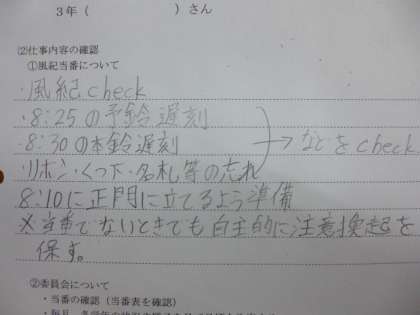 3年(　　　　　　)さん
⑵仕事内容の確認
①風紀当番について
・風紀check
・8:25の予鈴遅刻
・8:30の本鈴遅刻 → などをcheck
・リボン・くつ下・名札等の忘れ
8:10に正門に立てるよう準備
※当番でないときでも自主的に注意換起を
保す。
②委員会について
・当番の確認（当番表を確認）